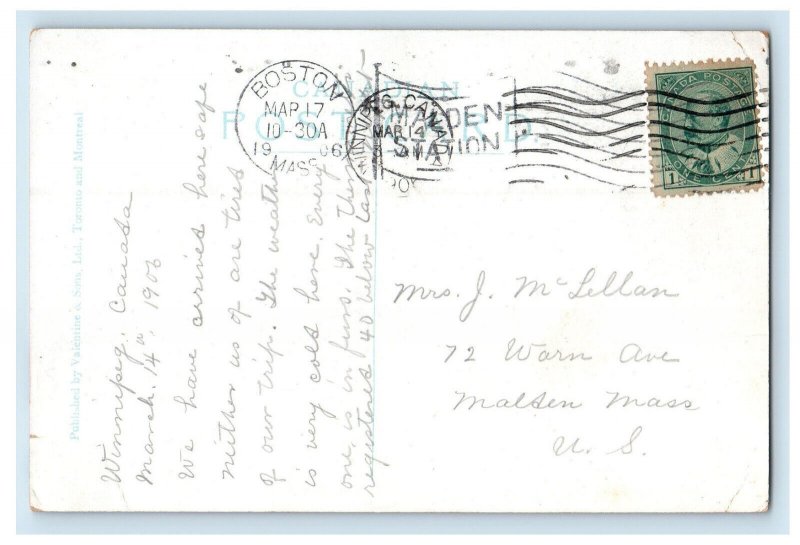 CANADIAN
POST CARD
Published by Valentine & Sons, Ltd., Toronto and Montreal
BOSTON
MAR 17
10-30A
19 06
MASS
WINNIPEG, CANADA
MAR 14
MALDEN
STATION
CANADA POSTAGE
ONE CENT
1 1
Winnipeg, Canada
March. 14th, 1906
We have arrived here safe
neither us of are tired
of our trip. The weather
is very cold here. Every
one, is in furs. The Ther
registered 40 below last
Mrs. J. McLellan
72 Warn Ave
Malden Mass
U. S.